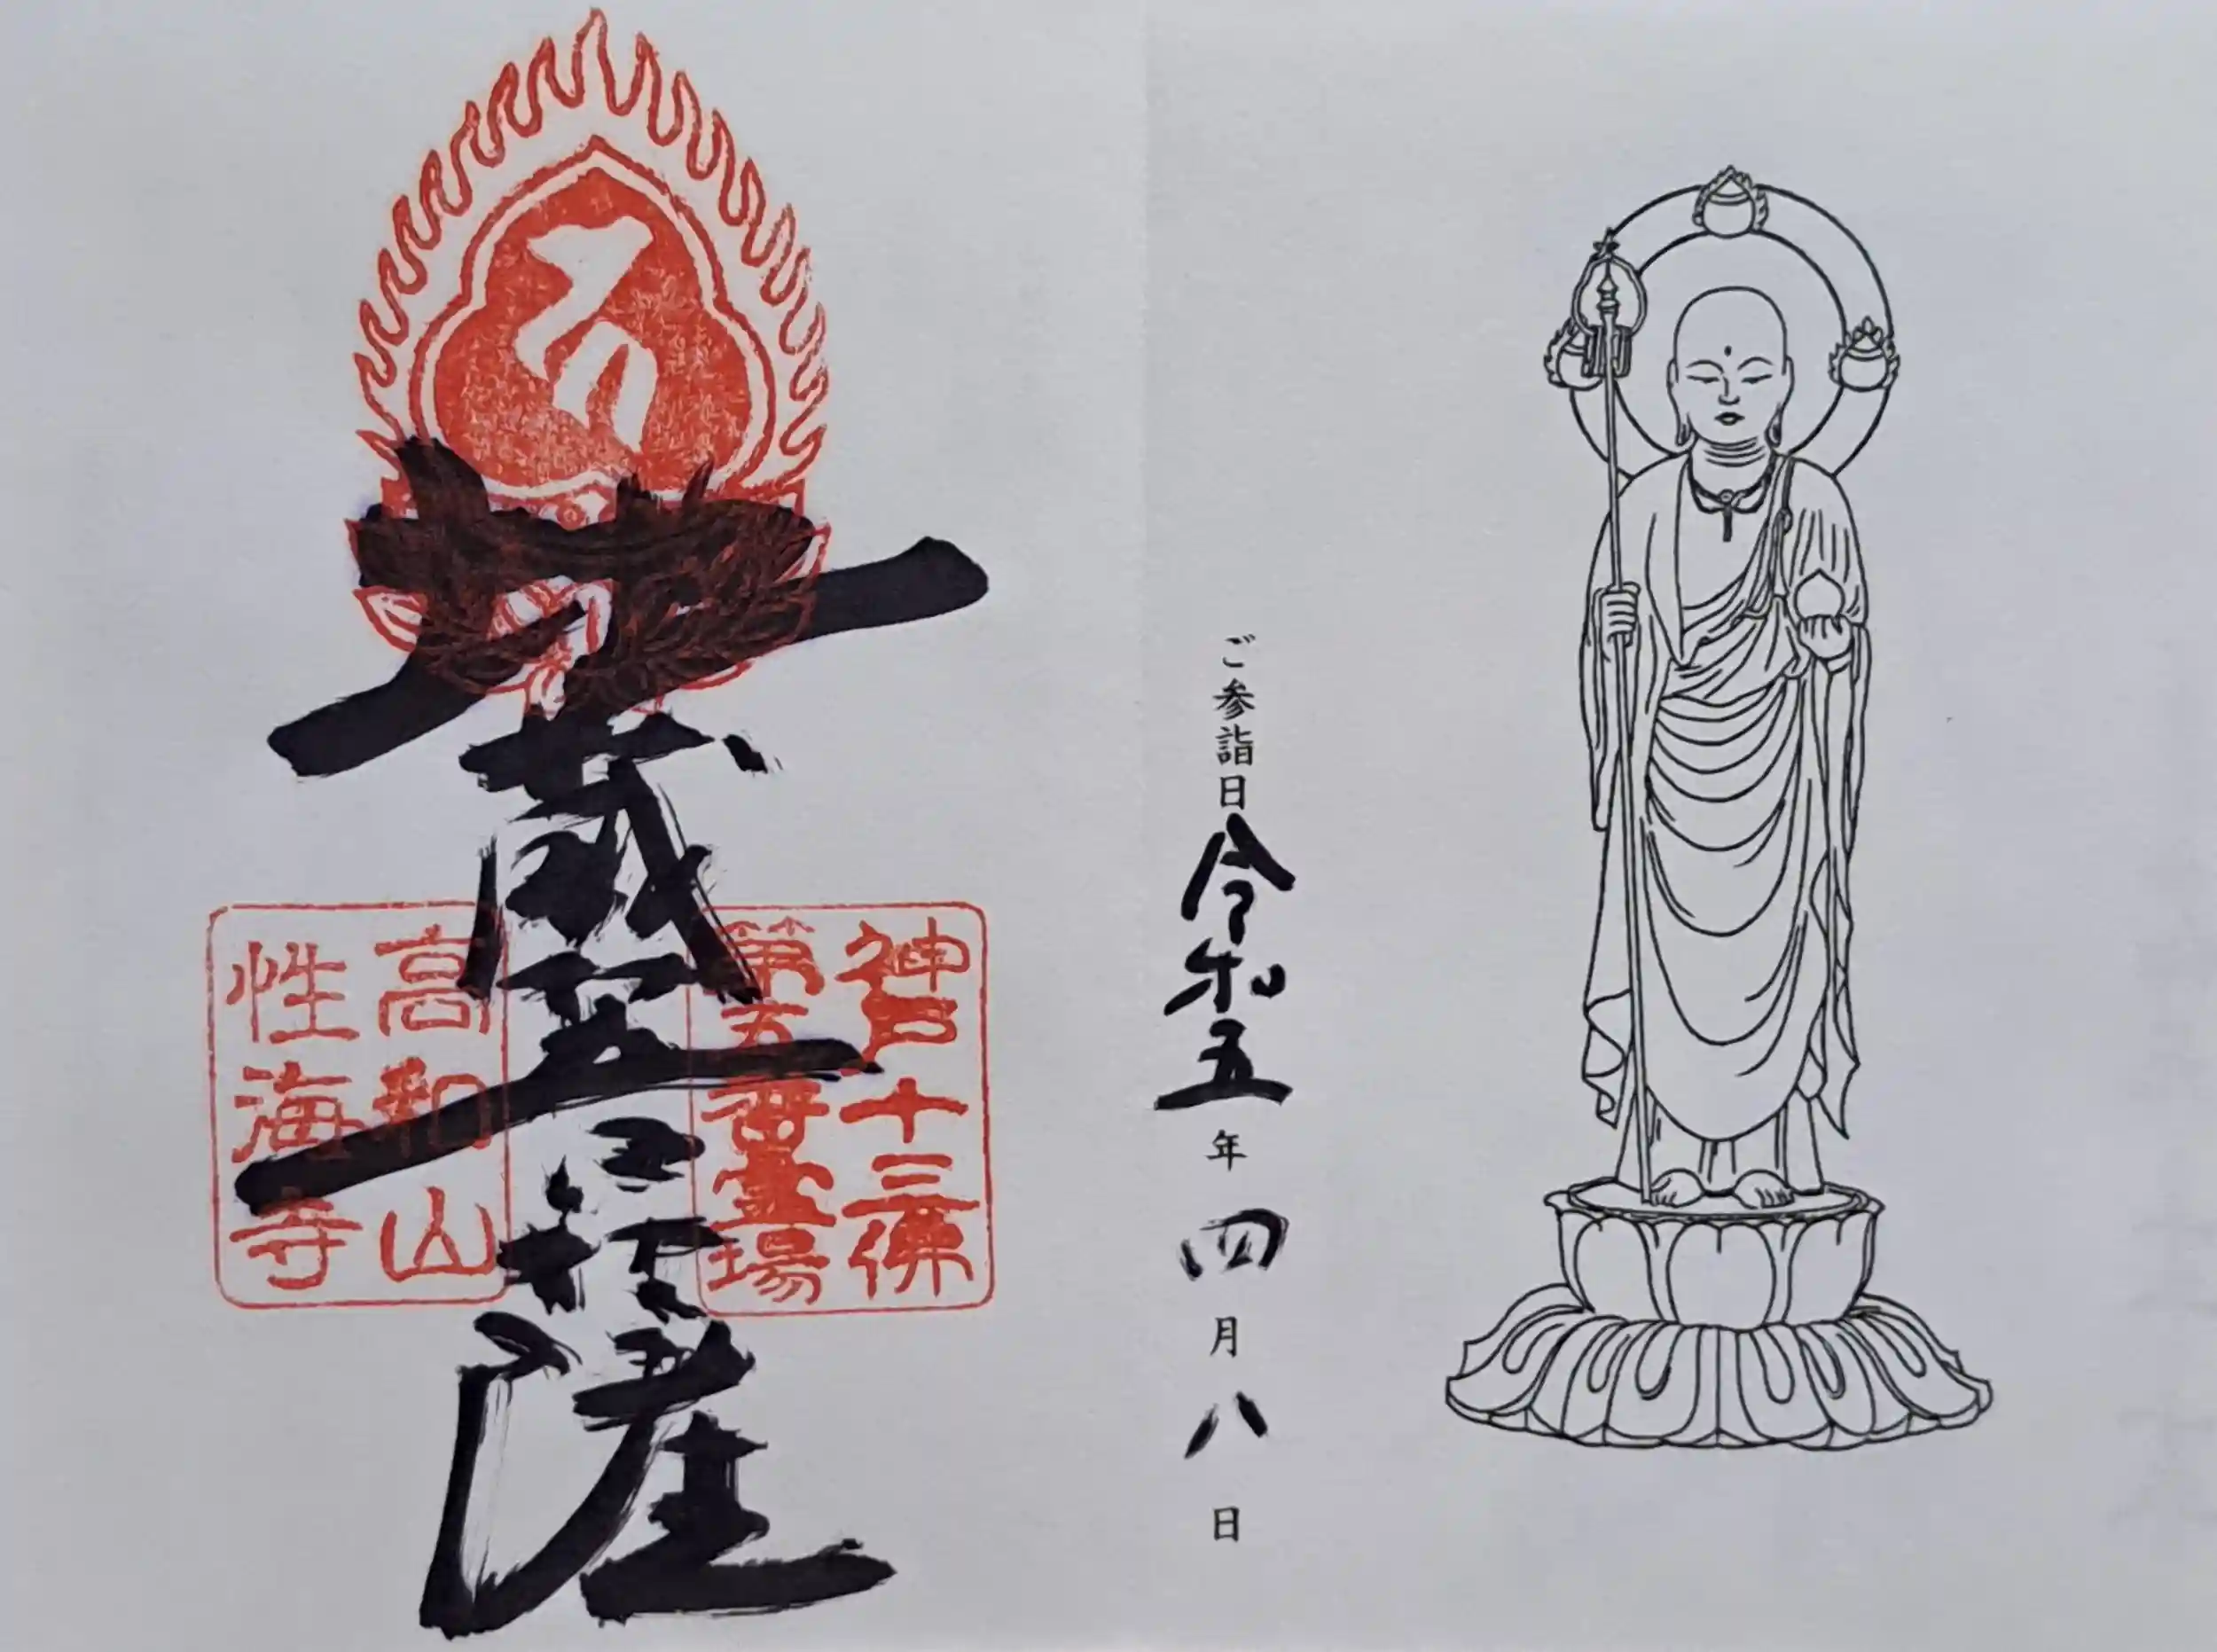 ご参詣日令和五年四月八日
地蔵菩薩
神戸十三佛
第五番霊場
高和山
性海寺